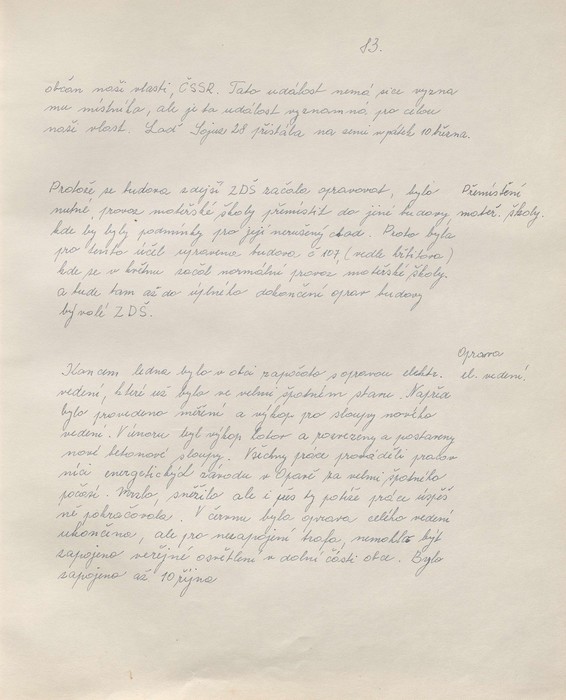 83.
občan naší vlasti, ČSSR. Tato událost nemá sice význa
mu místního, ale je to událost významná pro celou
naší vlast. Loď Sojuz 28 přistála na zemi v pátek 10 března.
Protože se budova zdejší ZDŠ začala opravovat, bylo
Přemístění
nutné, provoz mateřské školy přemístit do jiné budovy
mateř. školy.
kde by byly podmínky pro její nerušený chod. Proto byla
pro tento účel upravena budova č 107, (vedle hřbitova)
kde se v květnu začal normální provoz mateřské školy.
a bude tam až do úplného dokončení oprav budovy
bývalé ZDŠ.
Oprava
Koncem ledna bylo v obci započato s opravou elektr.
el. vedení.
vedení, které už bylo ve velmi špatném stavu. Napřed
bylo provedeno měření a výkop pro sloupy nového
vedení. V únoru byl výkop hotov a rozvezeny a postaveny
nové betonové sloupy. Všechny práce prováděli pracov
níci energetických závodů v Opavě za velmi špatného
počasí. Mrzlo, sněžilo ale i přes ty potíže práce úspěš
ně pokračovala. V červnu byla oprava celého vedení
ukončena, ale pro nezapojení trafa, nemohlo být
zapojeno veřejné osvětlení v dolní části obce. Bylo
zapojeno až 10 října